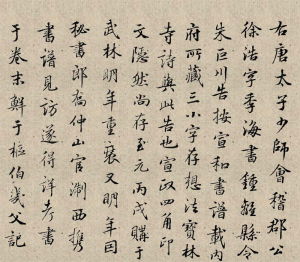 右唐太子少師會稽郡公
徐浩字季海書鍾離縣令
朱巨川告按宣和書譜載內
府所藏三小字存想法寶林
寺詩與此告也宣政四角印
文隱然尚存至元丙戌購于
武林明年重裝又明年因
秘書郎喬仲山官淛西攜
書譜見訪遂得詳考書
于卷末鮮于樞伯幾父記